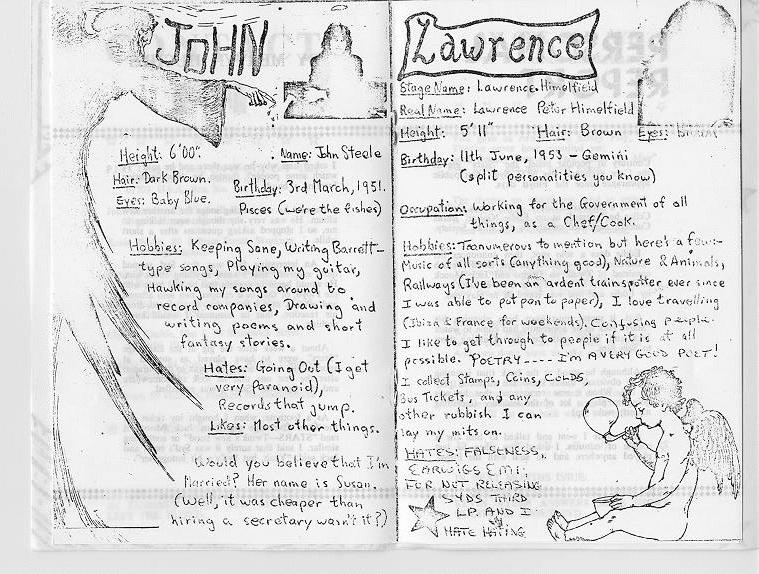 JOHN
Height: 6'00".
Name: John Steele
Hair: Dark Brown.
Birthday: 3rd March, 1951.
Eyes: Baby Blue.
Pisces (we're the fishes)
Hobbies: Keeping Sane, Writing Barrett-
type songs, Playing my guitar,
Hawking my songs around to
record companies, Drawing and
writing poems and short
fantasy stories.
Hates: Going Out (I get
very paranoid),
Records that jump.
Likes: Most other things.
Would you believe that I'm
Married? Her name is Susan.
(Well, it was cheaper than
hiring a secretary wasn't it?)
Lawrence
Stage Name: Lawrence Himelfield
Real Name: Lawrence Peter Himelfield
Height: 5'11" Hair: Brown Eyes:
Birthday: 11th June, 1953 - Gemini
(split personalities you know)
Occupation: Working for the Government of all
things, as a Chef/Cook.
Hobbies: Too numerous to mention but here's a few:-
Music of all sorts (anything good), Nature & Animals,
Railways (I've been an ardent trainspotter ever since
I was able to put pen to paper), I love travelling
(Ibiza & France for weekends). Confusing people.
I like to get through to people if it is at all
possible. POETRY ---- I'M A VERY GOOD POET!
I collect Stamps, Coins, COLDS,
Bus Tickets, and any
other rubbish I can
lay my mits on.
HATES: FALSENESS,
EARWIGS EMI;
FOR NOT RELEASING
SYDS THIRD
L.P. AND I
HATE HATING